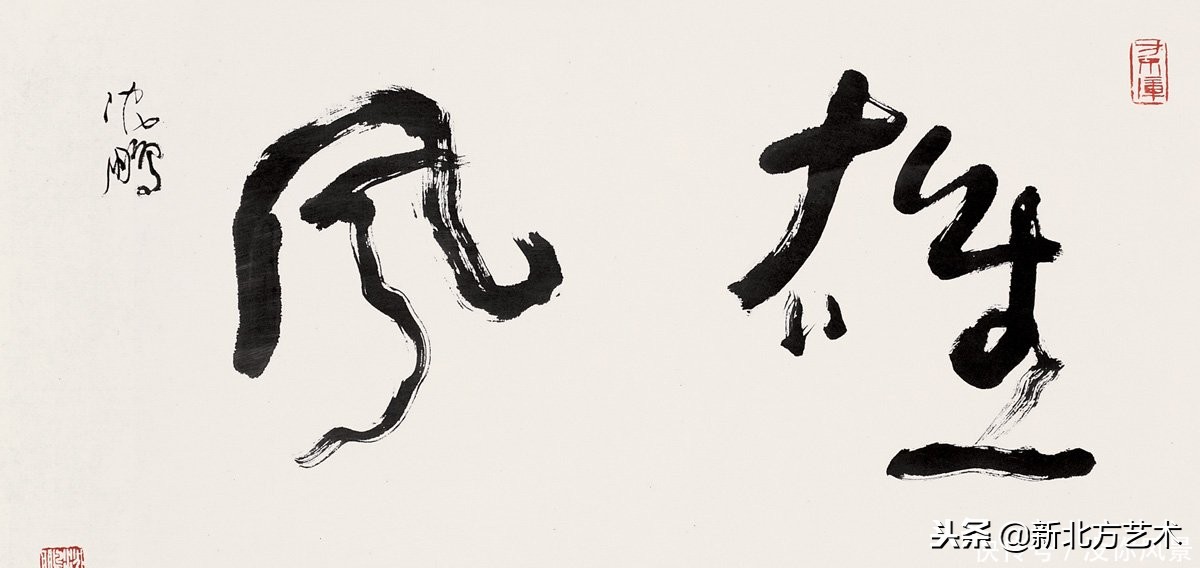 雄風
沈鵬
头条 @新北方艺术.